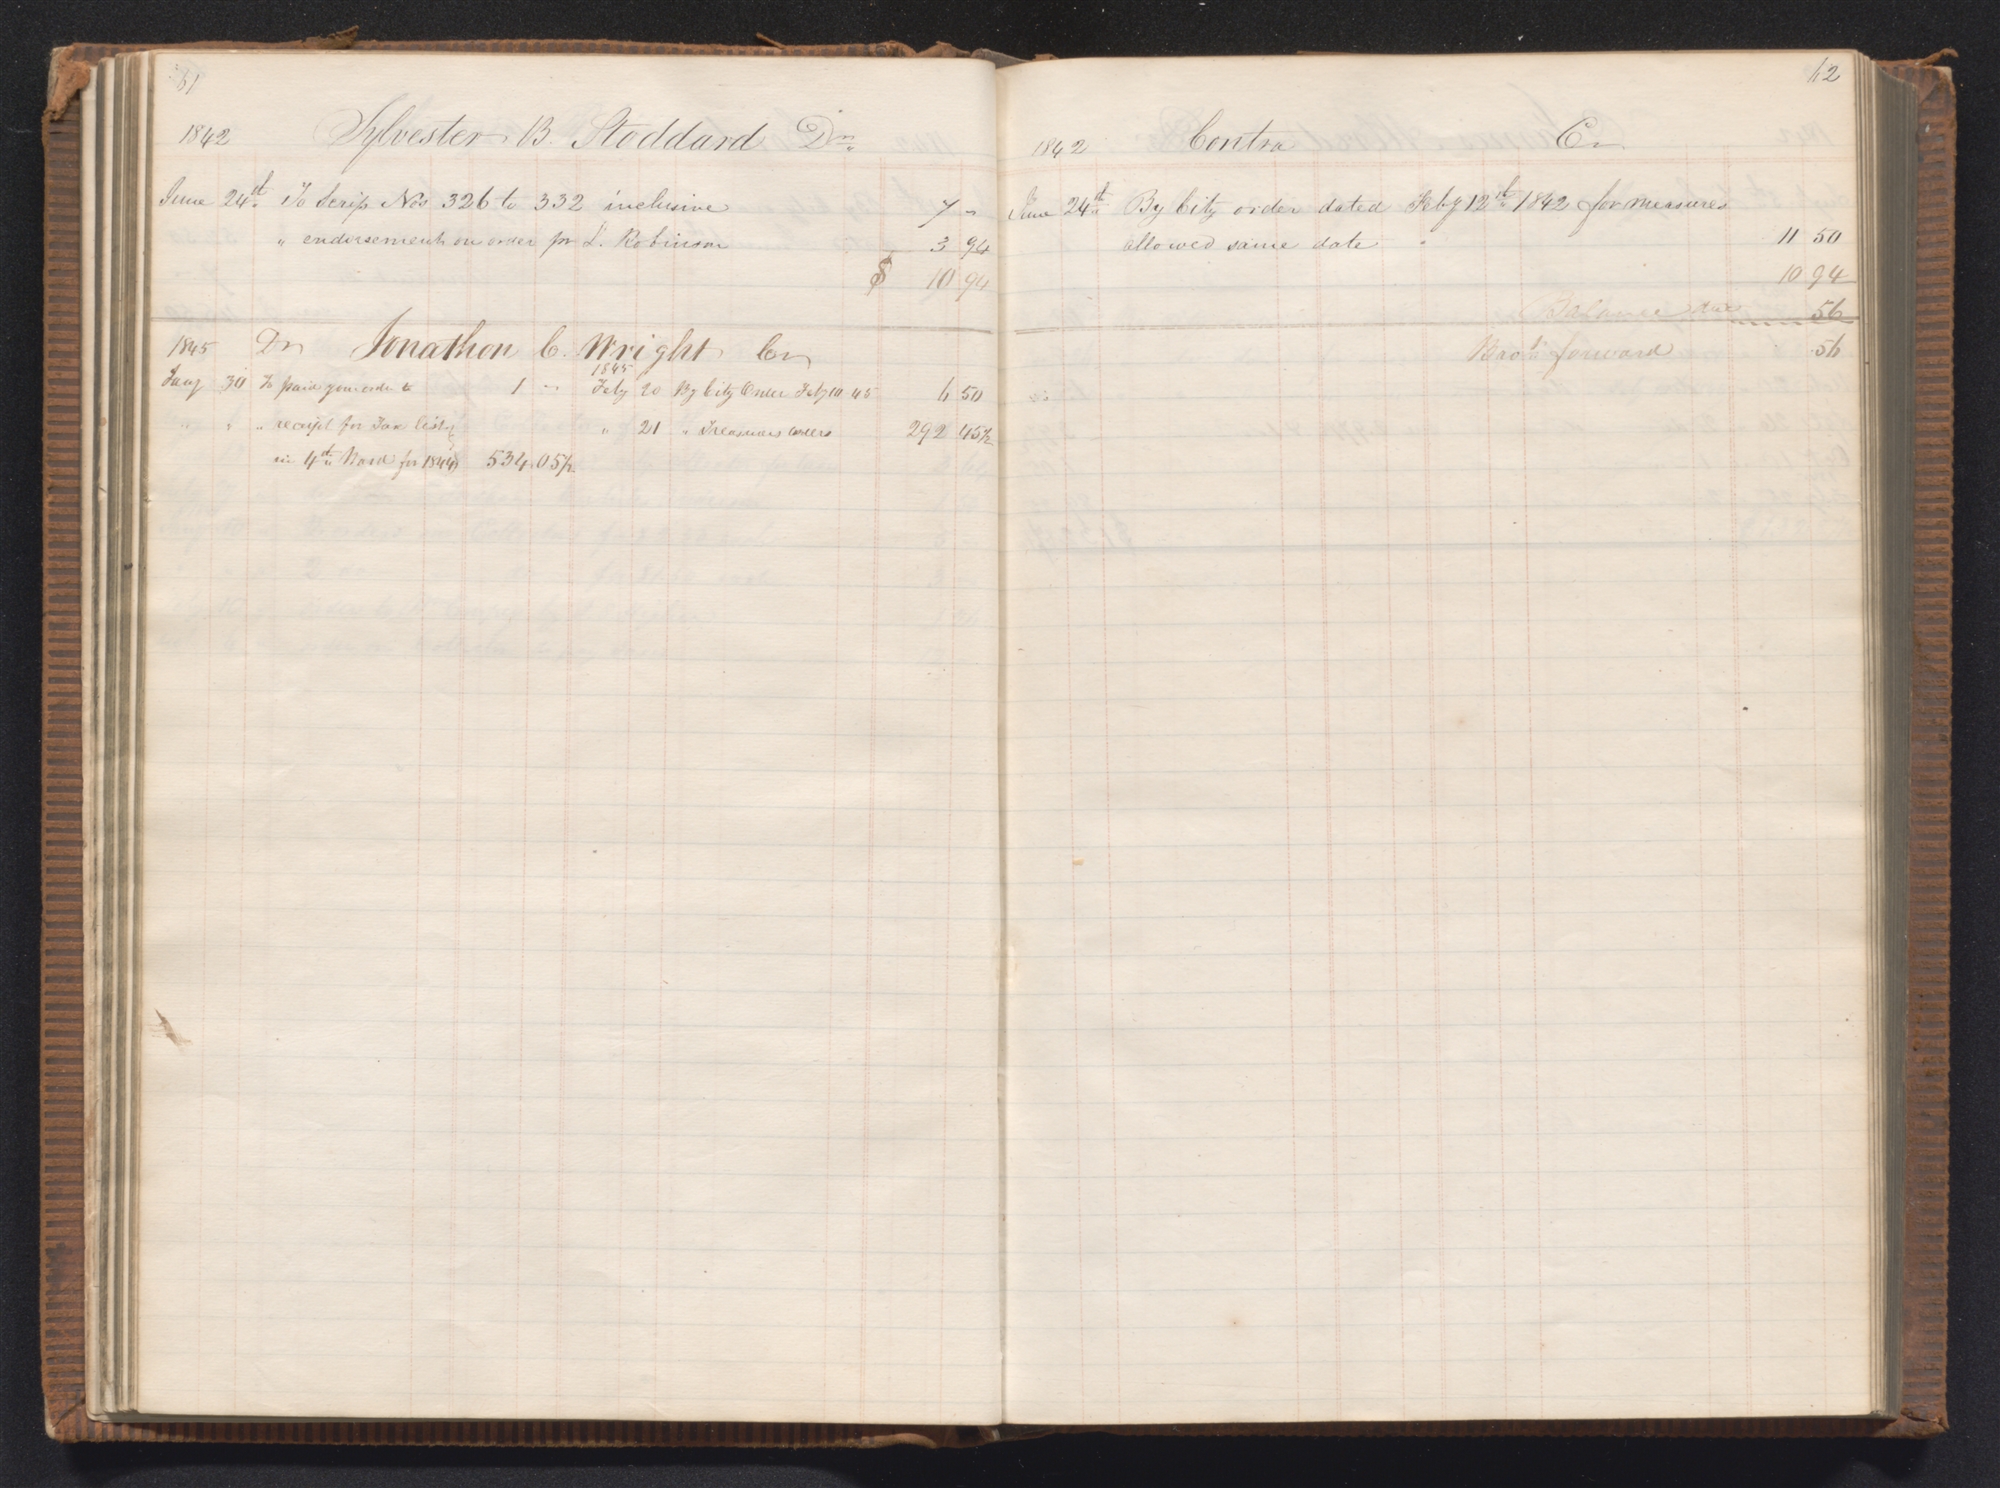 61
1842 Sylvester B. Stoddard Dr.
June 24th To Scrip Nos 326 to 332 inclusive 7 "
" endorsement on order for L. Robinson 3 94
$ 10 94
1845 Dr Jonathon C. Wright Cr
1845
Jany 30 To paid your order to 1 " Feby 20 By City Order Feby 10 45 6 50
" " " receipt for Tax list " 21 " Treasurers orders 292 45½
in 4th Ward for 1844 534.05½
62
1842 Contra Cr.
June 24th By City order dated Feby 12th 1842 for measures
allowed same date " 11 50
10 94
Balance due 56
Brot forward 56